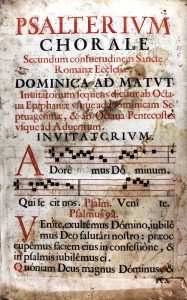 2
PSALTERIVM
CHORALE
Secundum consuetudinem Sancte
Romanæ Ecclesiæ
DOMINICA AD MATVT.
Invitatorium sequens dicitur ab Octa
va Epiphaniæ vsque ad Dominicam Sep
tuagesimæ, & ab Octava Pentecostes
vsque ad Adventum.
INVITATORIVM.
ADorè mus Dó minum.
Qui fe cit nos. Psalm. Veni te.
Psalmus 92.
VEnite, exultémus Dómino, iubilé
mus Deo salutári nostro: præoc
cupémus fáciem eius in confessióne, &
in psalmis iubilémus ei.
Quóniam Deus magnus Dóminus, &